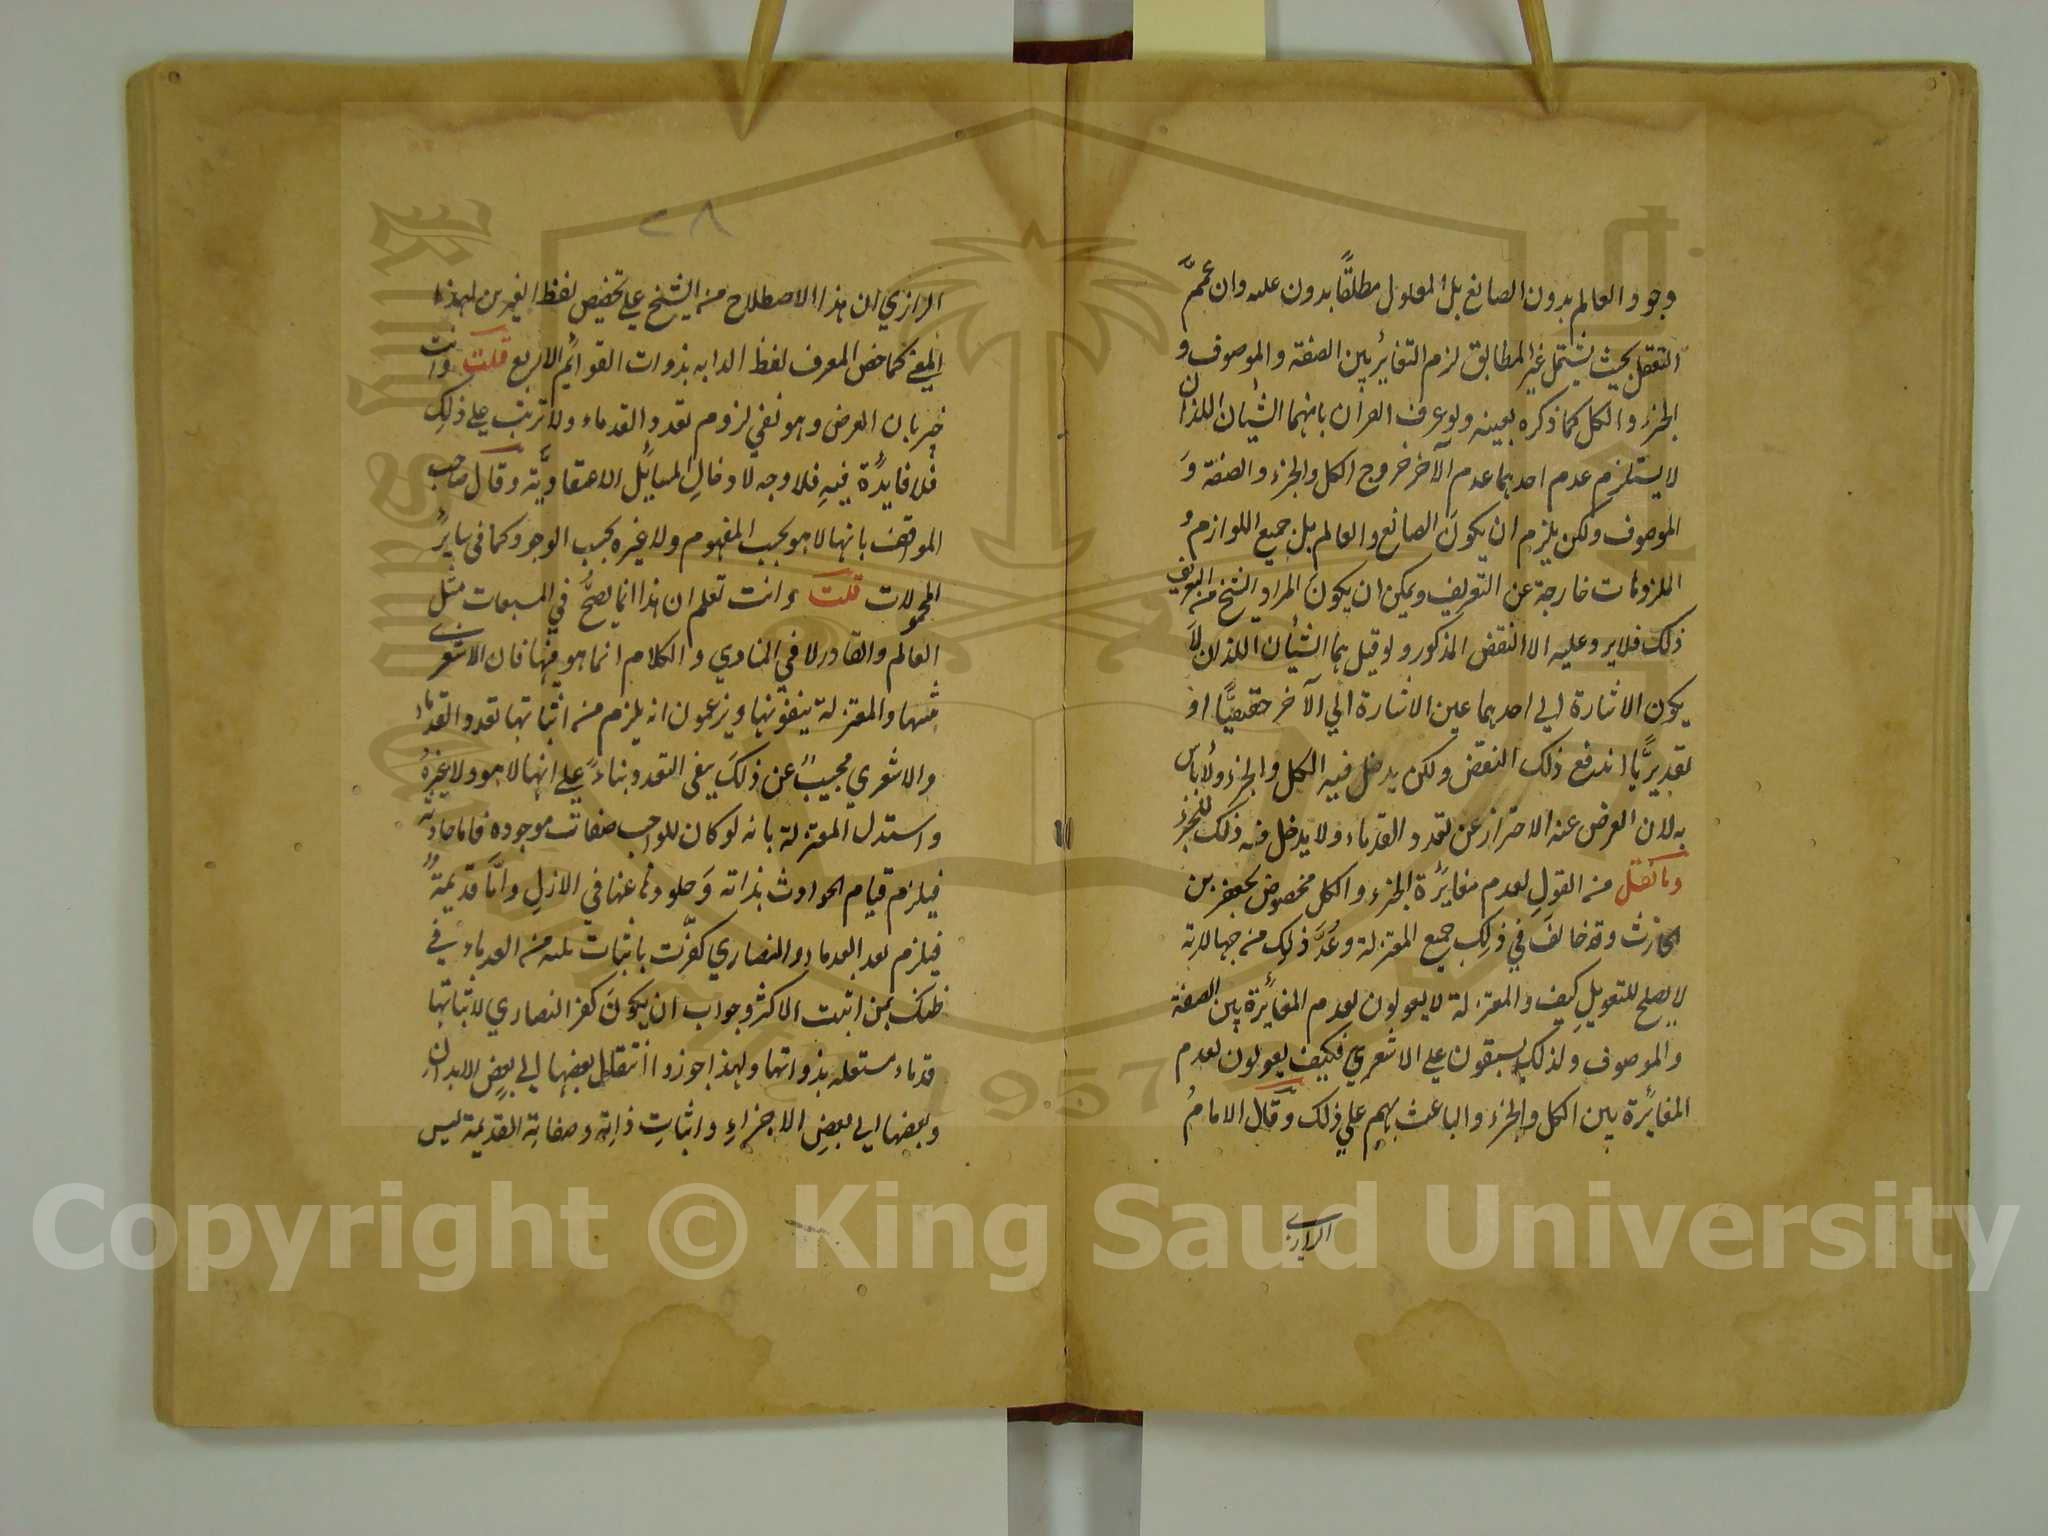 وجود العالم بدون الصانع بل المعلول مطلقًا بدون علته وان عمم
التعقل بحيث يشتمل غير المطابق لزم التغاير بين الصفة والموصوف و
الجزء والكل كما ذكره بعينه ولو عرف الغيران بانهما الشيان اللذان
لا يستلزم عدم احدهما عدم الآخر خروج الكل والجزء والصفة وَ
الموصوف ولكن يلزم ان يكون الصانع والعالم بل جميع اللوازم و
الملزومات خارجة عن التعريف ويمكن ان يكون المراد الشيخ من التعريف
ذلك فلا يرد عليه الا النقض المذكور ولو قيل هما الشيأن اللذان لا
يكون الاشارة الي احدهما عين الاشارة الي الآخر حقيقيًّا او
تقديريًّا اندفع ذلك النقض ولكن يدخل فيه الكل والجزء ولا بأس
به لان الغرض عنه الاحتراز عن تعدد القدماء ولا يدخل فيه ذلك للجزء
وما نقل من القول بعدم مغايرة الجزء والكل مخصوص بجعفر بن
حارث وقد خالف في ذلك جميع المعتزلة وعُدَّ ذلك من جهالاته
لا يصلح للتعويل كيف والمعتزلة لا يقولون بعدم المغايرة بين الصفة
والموصوف ولذلك يسبقون علي الاشعري فكيف يقولون بعدم
المغايرة بين الكل والجزء والباعث بهم علي ذلك وقال الامام
الرازي
٢٨
الرازي ان هذا الاصطلاح من الشيخ علي تخصيص لفظ الغيرين لهذا
المعني كما خص المعرف لفظ الدابه بذوات القوائم الاربع قلت وانت
خبر بان الغرض وهو نفي لزوم تعدد القدماء ولا ترتب علي ذلك
فلا فايدة فيه فلا وجه لادخال المسايل الاعتقاديّة وقال صاحب
المواقف بانها لا هو بحسب المفهوم ولا غيره بحسب الوجود كما في ساير
المحمولات قلت وانت تعلم ان هذا انما يصحُّ في المشتقات مثل
العالم والقادر لا في المبادي والكلام انما هو فيها فان الاشعري
يثبتها والمعتزلة ينفونها ويزعمون انه يلزم من اثباتها تعدد القدماء
والاشعري مجيبً عن ذلك بنفي التعدد بناءً علي انها لا هو ولا غيرهُ
واستدل المعتزلة بانه لو كان للواجب صفات موجوده فاما حادثة
فيلزم قيام الحوادث بذاته وَخلوه عنها في الازل وامّا قديمةٌ
فيلزم تعدد القدماء والنصاري كفّرت باثبات ثلثه من القدماء في
ظنك بمن اثبت الاكثر وجواب ان يكون كفر النصاري لاثباتها
قدماء مستقله بذواتها ولهذا جوزوا انتقال بعضها الي بعضِ الابدان
وبعضها الي بعضِ الاجزاءِ واثباتِ ذاته وصفاته القديمة ليس
Copyright © King Saud University
1957